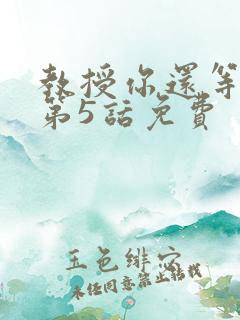 教授你還等
第5話免費
玉色緋穴
未经同意禁止转载